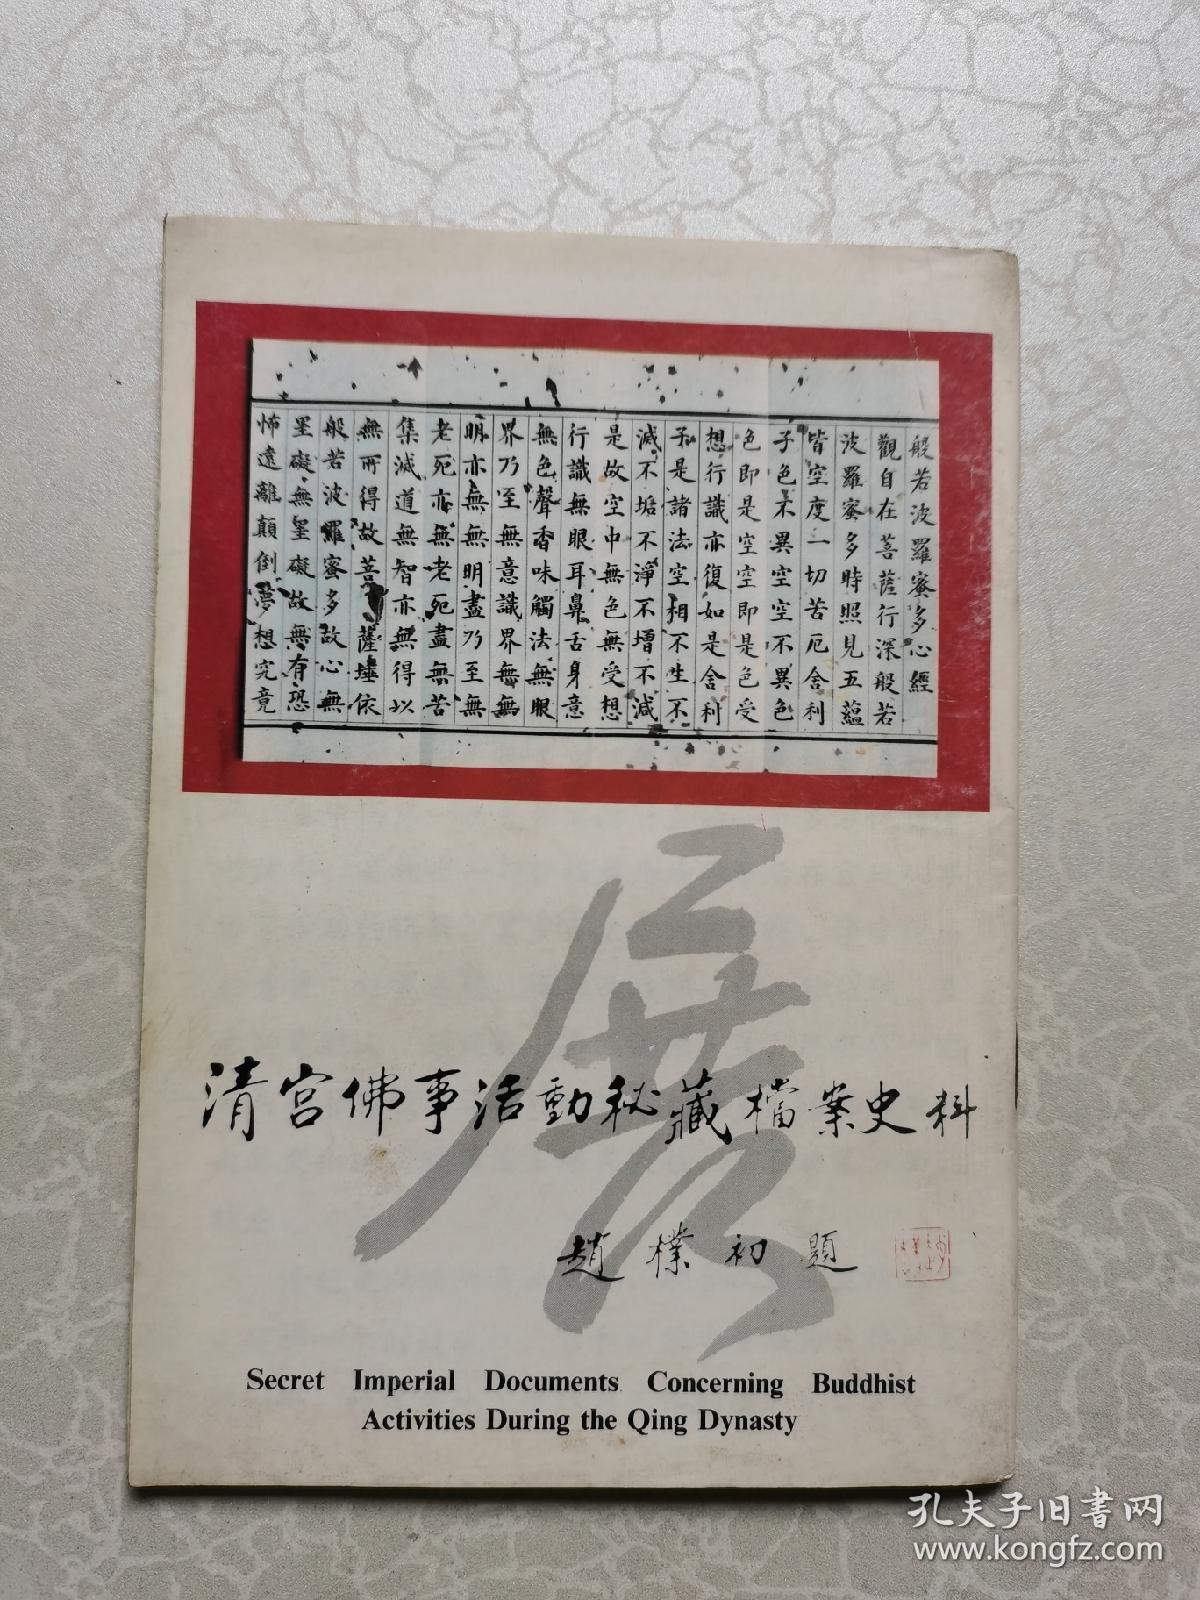 般若波羅蜜多心經
觀自在菩薩行深般若
波羅蜜多時照見五蘊
皆空度一切苦厄舍利
子色不異空空不異色
色即是空空即是色受
想行識亦復如是舍利
子是諸法空相不生不
滅不垢不淨不增不減
是故空中無色無受想
行識無眼耳鼻舌身意
無色聲香味觸法無眼
界乃至無意識界無無
明亦無無明盡乃至無
老死亦無老死盡無苦
集滅道無智亦無得以
無所得故菩薩埵依
般若波羅蜜多故心無
罣礙無罣礙故無有恐
怖遠離顛倒夢想究竟
展
清宮佛事活動秘藏檔案史料
趙樸初題
Secret Imperial Documents Concerning Buddhist
Activities During the Qing Dynasty
孔夫子旧书网
www.kongfz.com